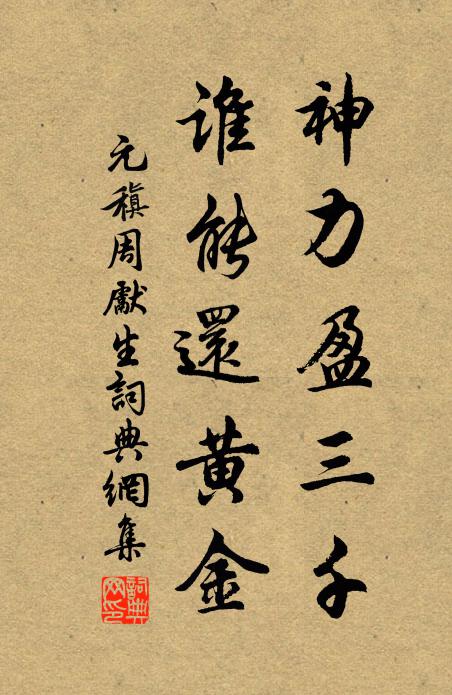 神力盈三千
谁能還黄金
元稹周獻生詞典網集
詞典网印